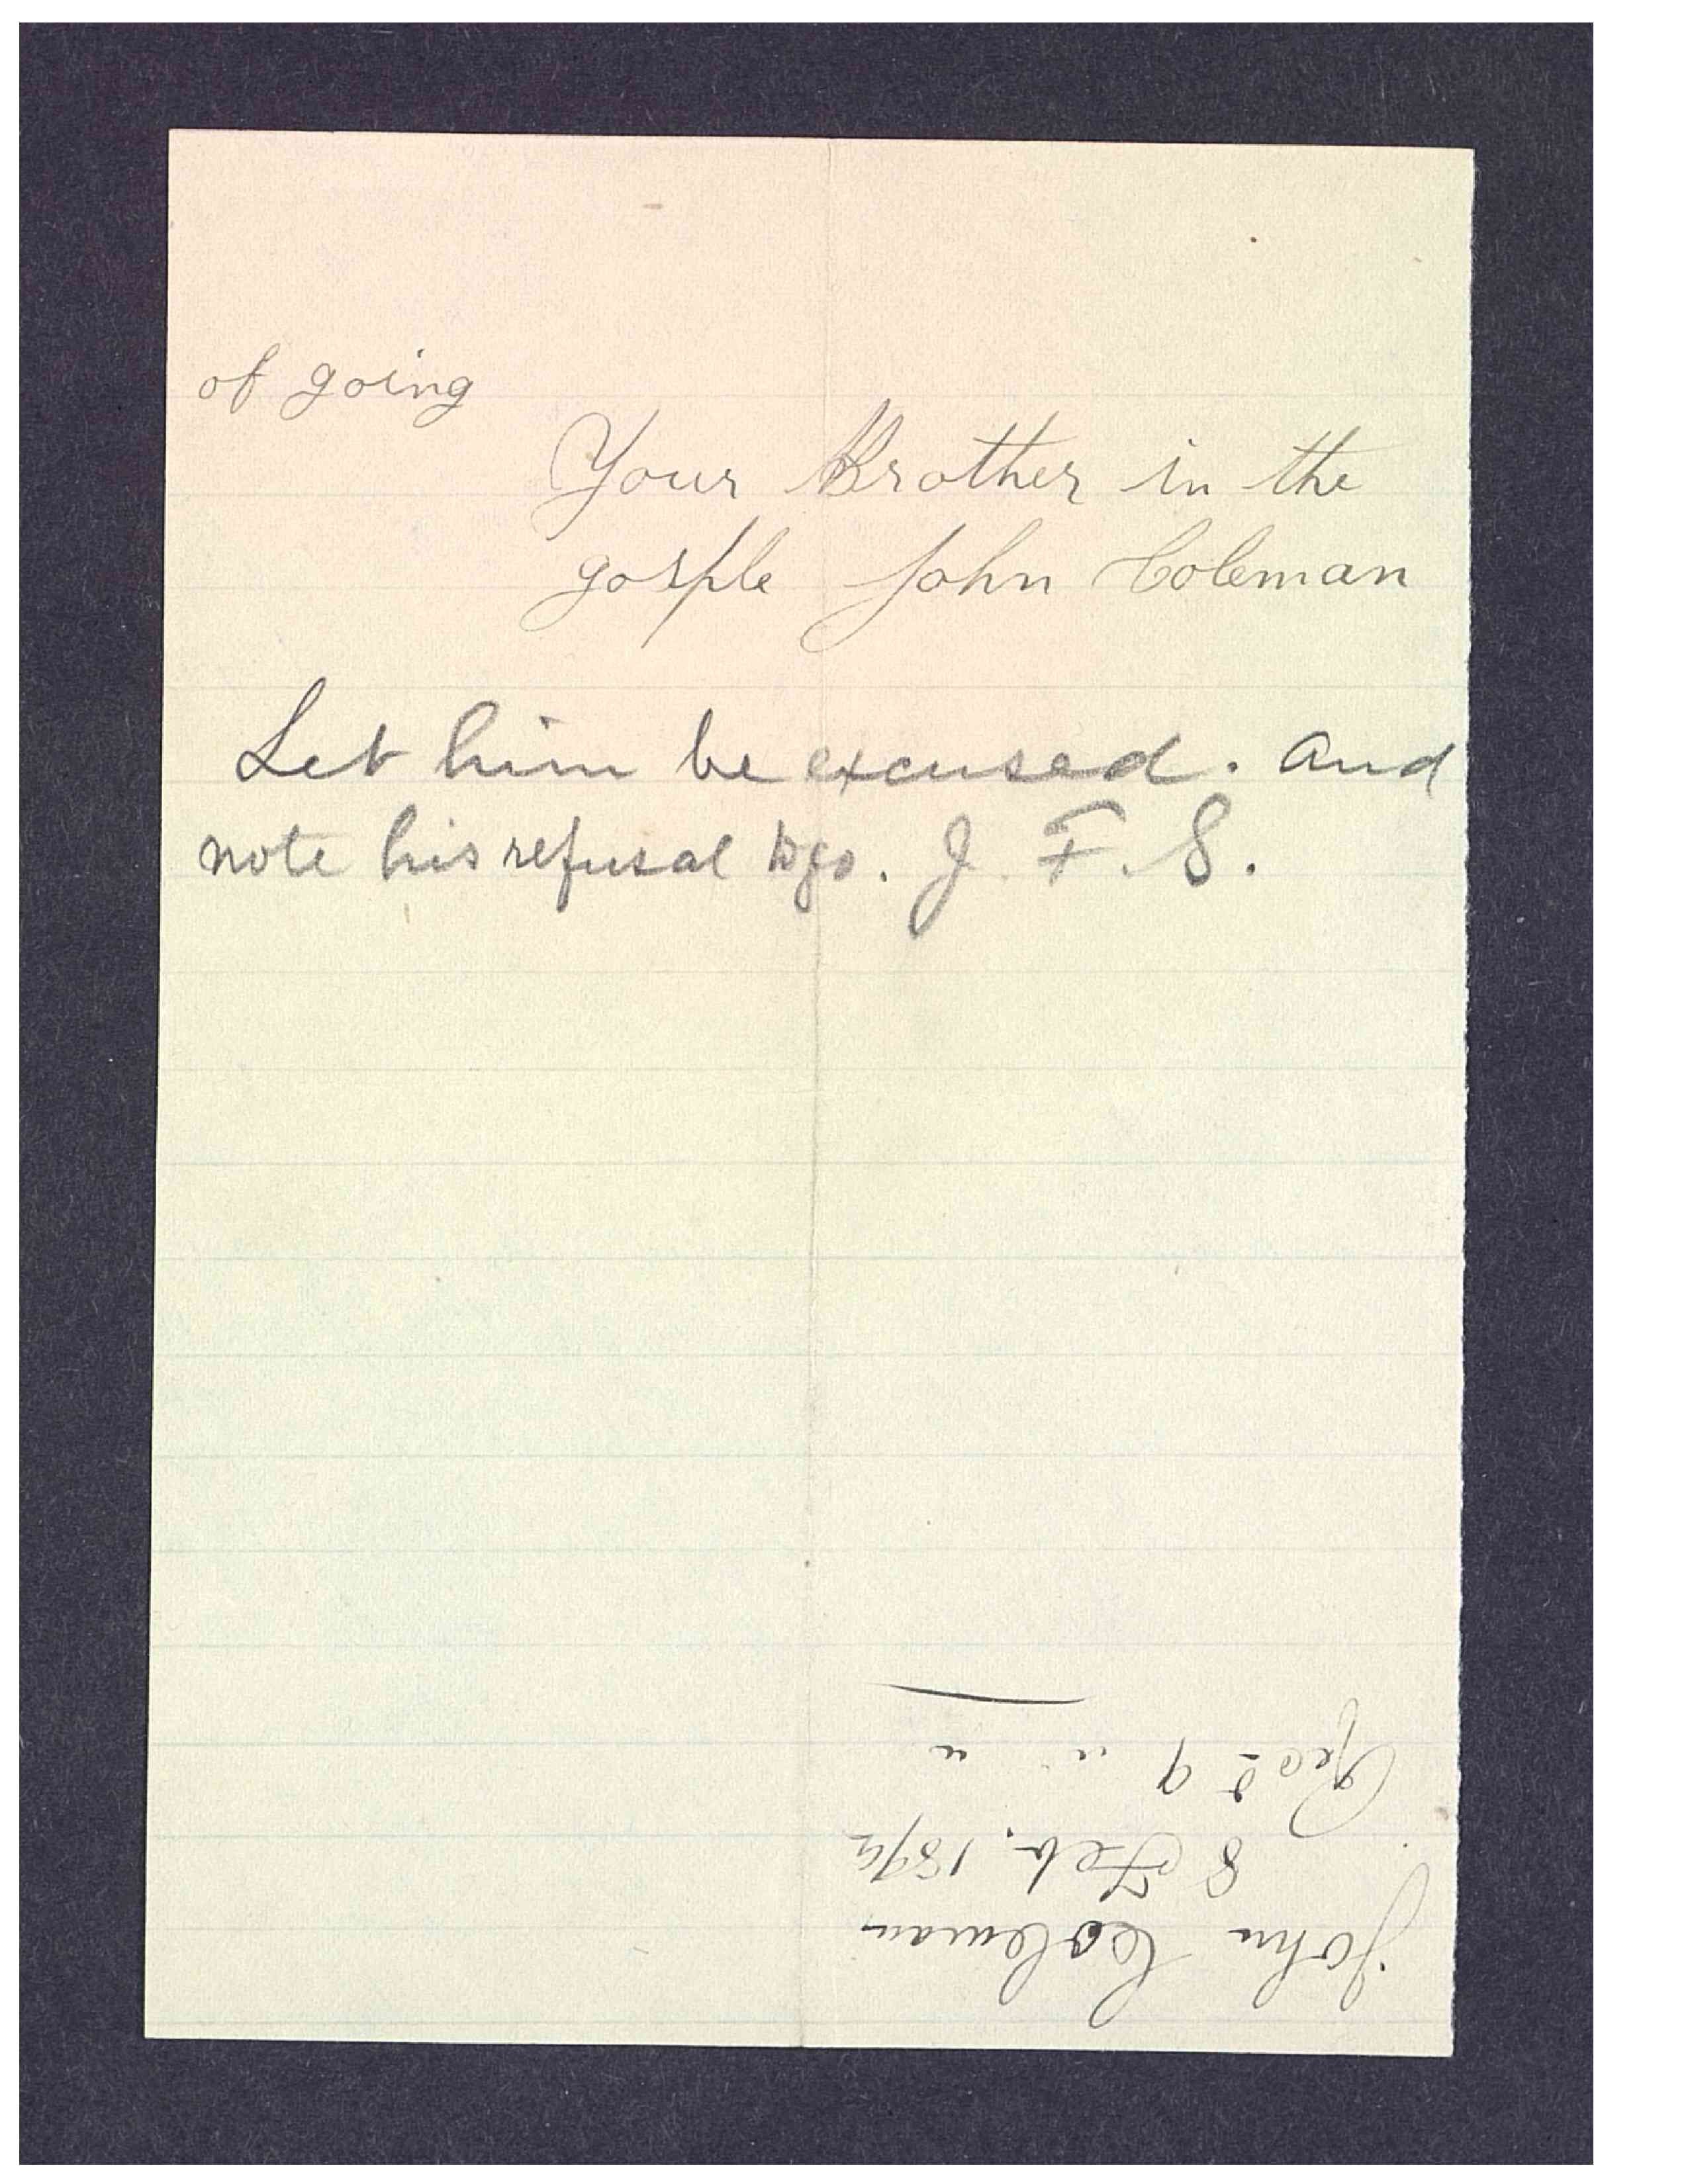 of going
Your Brother in the
gosple John Coleman
Let him be excused. And
note his refusal to go. J. F. S.
John Coleman
8 Feb. 189
Recd 9 " "